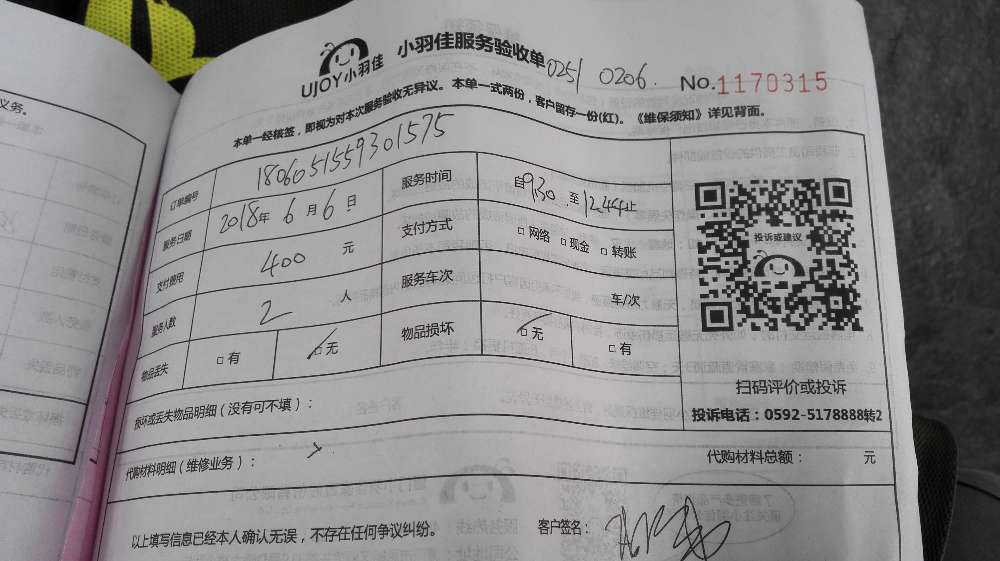 UJOY小羽佳 小羽佳服务验收单 0251 0206. No.1170315
本单一经核签，即视为对本次服务验收无异议。本单一式两份，客户留存一份(红)。《维保须知》详见背面。
订单编号 1806051559301575 服务时间 自9:30至12:44止
服务日期 2018年6月6日 支付方式 □ 网络 □ 现金 □ 转账
支付费用 400 元 服务车次 车/次
服务人数 2 人 物品损坏 □ 无 □ 有
物品丢失 □ 有 □ 无
投诉或建议
扫码评价或投诉
投诉电话：0592-5178888转2
损坏或丢失物品明细（没有可不填）：
代购材料明细（维修业务）： 代购材料总额： 元
以上填写信息已经本人确认无误，不存在任何争议纠纷。 客户签名：
义务。